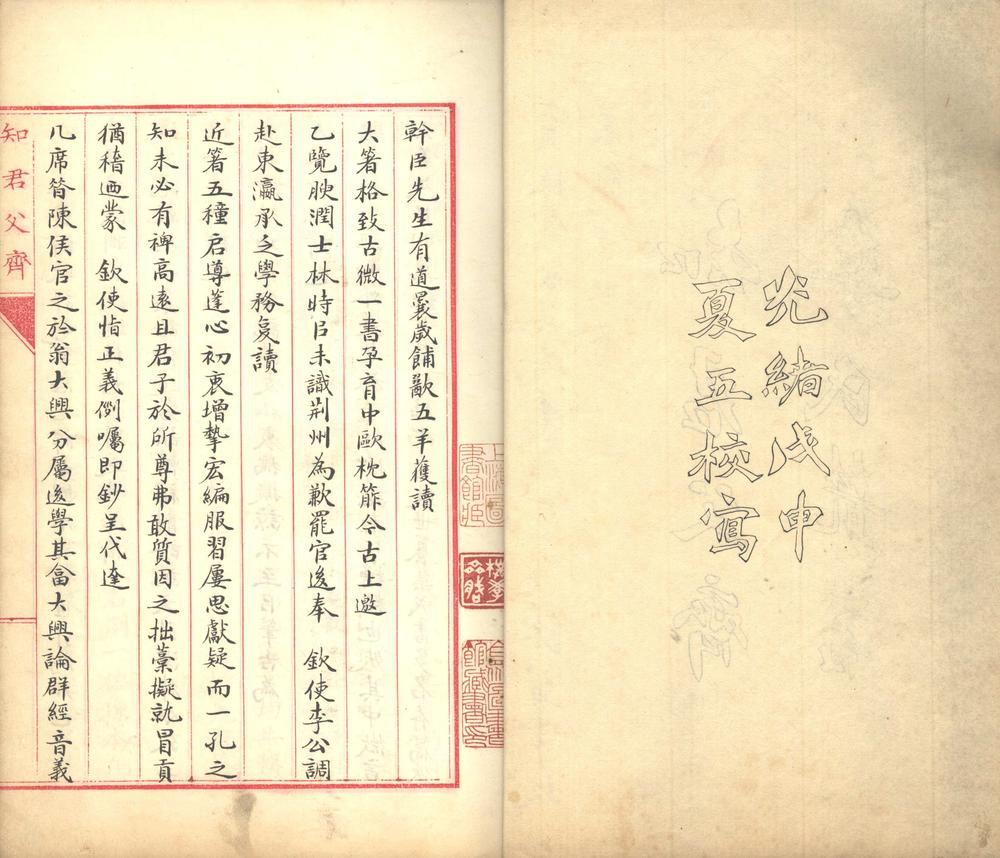 光緒戊申
夏五校寫
幹臣先生有道曩歲餔歠五羊獲讀
大箸格致古微一書孕育中歐枕葄今古上邀
乙覽腴潤士林時㠯未識荆州為歉罷官後奉　欽使李公調
赴東瀛承乏學務复讀
近箸五種启導蓬心初衷增摯宏編服習屢思獻疑而一孔之
知未必有裨高遠且君子於所尊弗敢質因之拙藁擬就冒貢
猶稽迺蒙　欽使恉正義例囑即鈔呈代達
几席昝陳侯官之於翁大興分屬後學其畣大興論群經音義
知君父齊